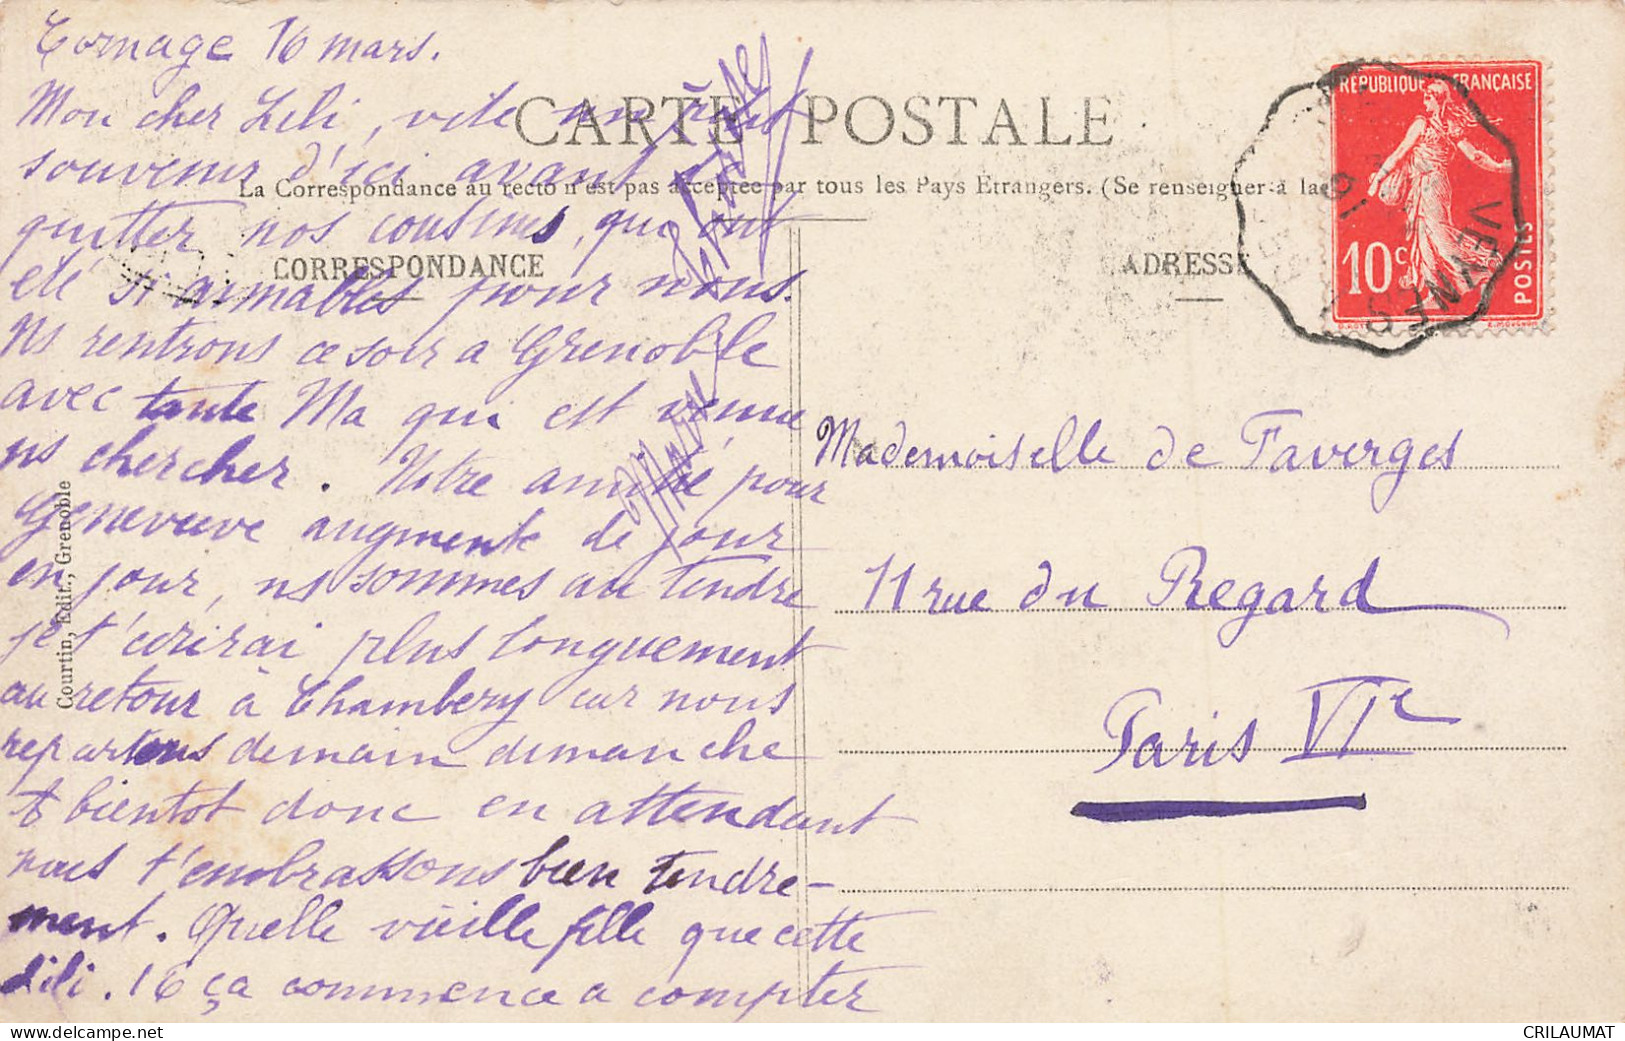 Cornage 16 mars.
Mon cher Lili, vite un
souvenir d'ici avant de
quitter nos cousines, qui ont
été si aimables pour nous.
Ns rentrons ce soir a Grenoble
avec tante Ma qui est venue
ns chercher. Notre amitié pour
Genevieve augmente de jour
en jour, ns sommes au tendre
je t'écrirai plus longuement
au retour à Chambery car nous
repartons demain dimanche
A bientot donc en attendant
nous t'embrassons bien tendre-
ment. Quelle vieille fille que cette
Lili. 16 ça commence a compter
CARTE POSTALE
La Correspondance au recto n'est pas acceptée par tous les Pays Etrangers. (Se renseigner à la
CORRESPONDANCE
ADRESSE
Courtin, Edit., Grenoble
RÉPUBLIQUE FRANÇAISE
10c
POSTES
VEYNES
Mademoiselle de Faverges
11 rue du Regard
Paris VIe
CRILAUMAT